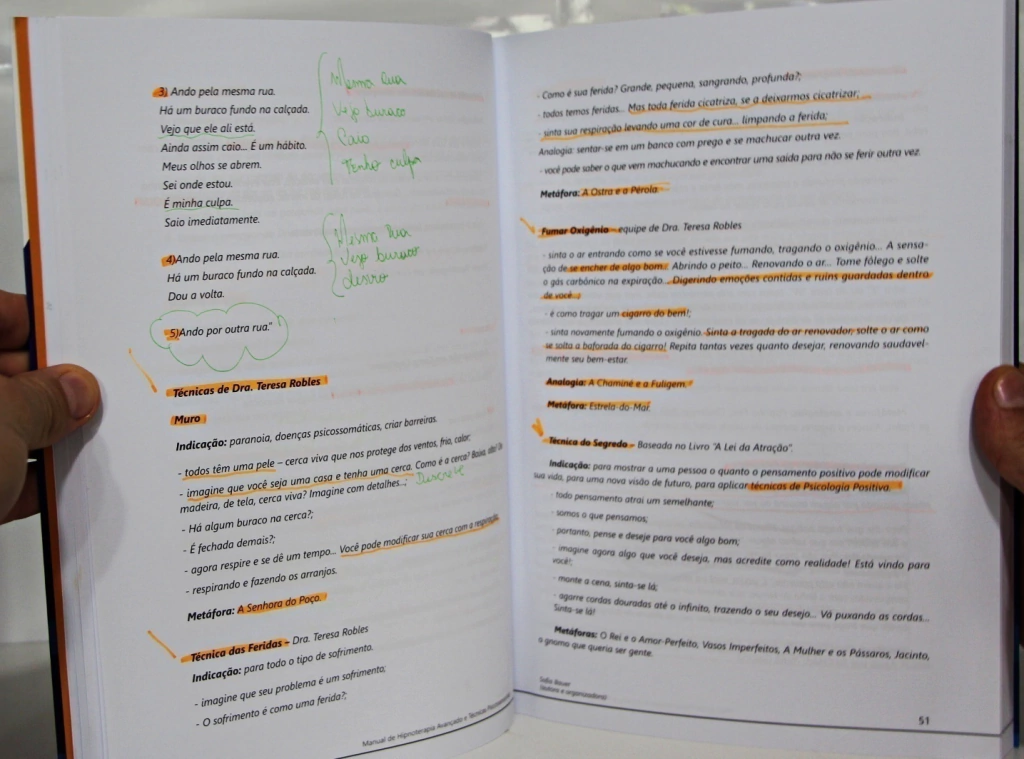 3) Ando pela mesma rua.
Há um buraco fundo na calçada.
Vejo que ele ali está.
Ainda assim caio... É um hábito.
Meus olhos se abrem.
Sei onde estou.
É minha culpa.
Saio imediatamente.
Mesma rua
Vejo buraco
Caio
Tenho culpa
4)Ando pela mesma rua.
Há um buraco fundo na calçada.
Dou a volta.
Mesma rua
Vejo buraco
5)Ando por outra rua."
Técnicas de Dra. Teresa Robles
Muro
Indicação: paranoia, doenças psicossomáticas, criar barreiras.
- todos têm uma pele – cerca viva que nos protege dos ventos, frio, calor;
- imagine que você seja uma casa e tenha uma cerca. Como é a cerca? Baixa, alta? De
madeira, de tela, cerca viva? Imagine com detalhes...;
- Há algum buraco na cerca?;
- É fechada demais?;
- agora respire e se dê um tempo... Você pode modificar sua cerca com a respiração.
- respirando e fazendo os arranjos.
Metáfora: A Senhora do Poço.
Técnica das Feridas – Dra. Teresa Robles
Indicação: para todo o tipo de sofrimento.
- imagine que seu problema é um sofrimento;
- O sofrimento é como uma ferida?;
Manual de Hipnoterapia Avançada e Técnicas
- Como é sua ferida? Grande, pequena, sangrando, profunda?;
- todos temos feridas... Mas toda ferida cicatriza, se a deixarmos cicatrizar;
- sinta sua respiração levando uma cor de cura... limpando a ferida;
Analogia: sentar-se em um banco com prego e se machucar outra vez.
- você pode saber o que vem machucando e encontrar uma saída para não se ferir outra vez.
Metáfora: A Ostra e a Pérola.
Fumar Oxigênio – equipe de Dra. Teresa Robles
- sinta o ar entrando como se você estivesse fumando, tragando o oxigênio... A sensa-
ção de se encher de algo bom. Abrindo o peito... Renovando o ar... Tome fôlego e solte
o gás carbônico na expiração... Digerindo emoções contidas e ruins guardadas dentro
de você...;
- é como tragar um cigarro do bem!;
- sinta novamente fumando o oxigênio. Sinta a tragada do ar renovador; solte o ar como
se solta a baforada do cigarro! Repita tantas vezes quanto desejar, renovando saudavel-
mente seu bem-estar.
Analogia: A Chaminé e a Fuligem.
Metáfora: Estrela-do-Mar.
Técnica do Segredo – Baseada no Livro "A Lei da Atração".
Indicação: para mostrar a uma pessoa o quanto o pensamento positivo pode modificar
sua vida, para uma nova visão de futuro, para aplicar técnicas de Psicologia Positiva.
- todo pensamento atrai um semelhante;
- somos o que pensamos;
- portanto, pense e deseje para você algo bom;
- imagine agora algo que você deseja, mas acredite como realidade! Está vindo para
você!;
- monte a cena, sinta-se lá;
- agarre cordas douradas até o infinito, trazendo o seu desejo... Vá puxando as cordas...
Sinta-se lá!
Metáforas: O Rei e o Amor-Perfeito, Vasos Imperfeitos, A Mulher e os Pássaros, Jacinto,
o gnomo que queria ser gente.
Sofia Bauer
(autora e organizadora)
51